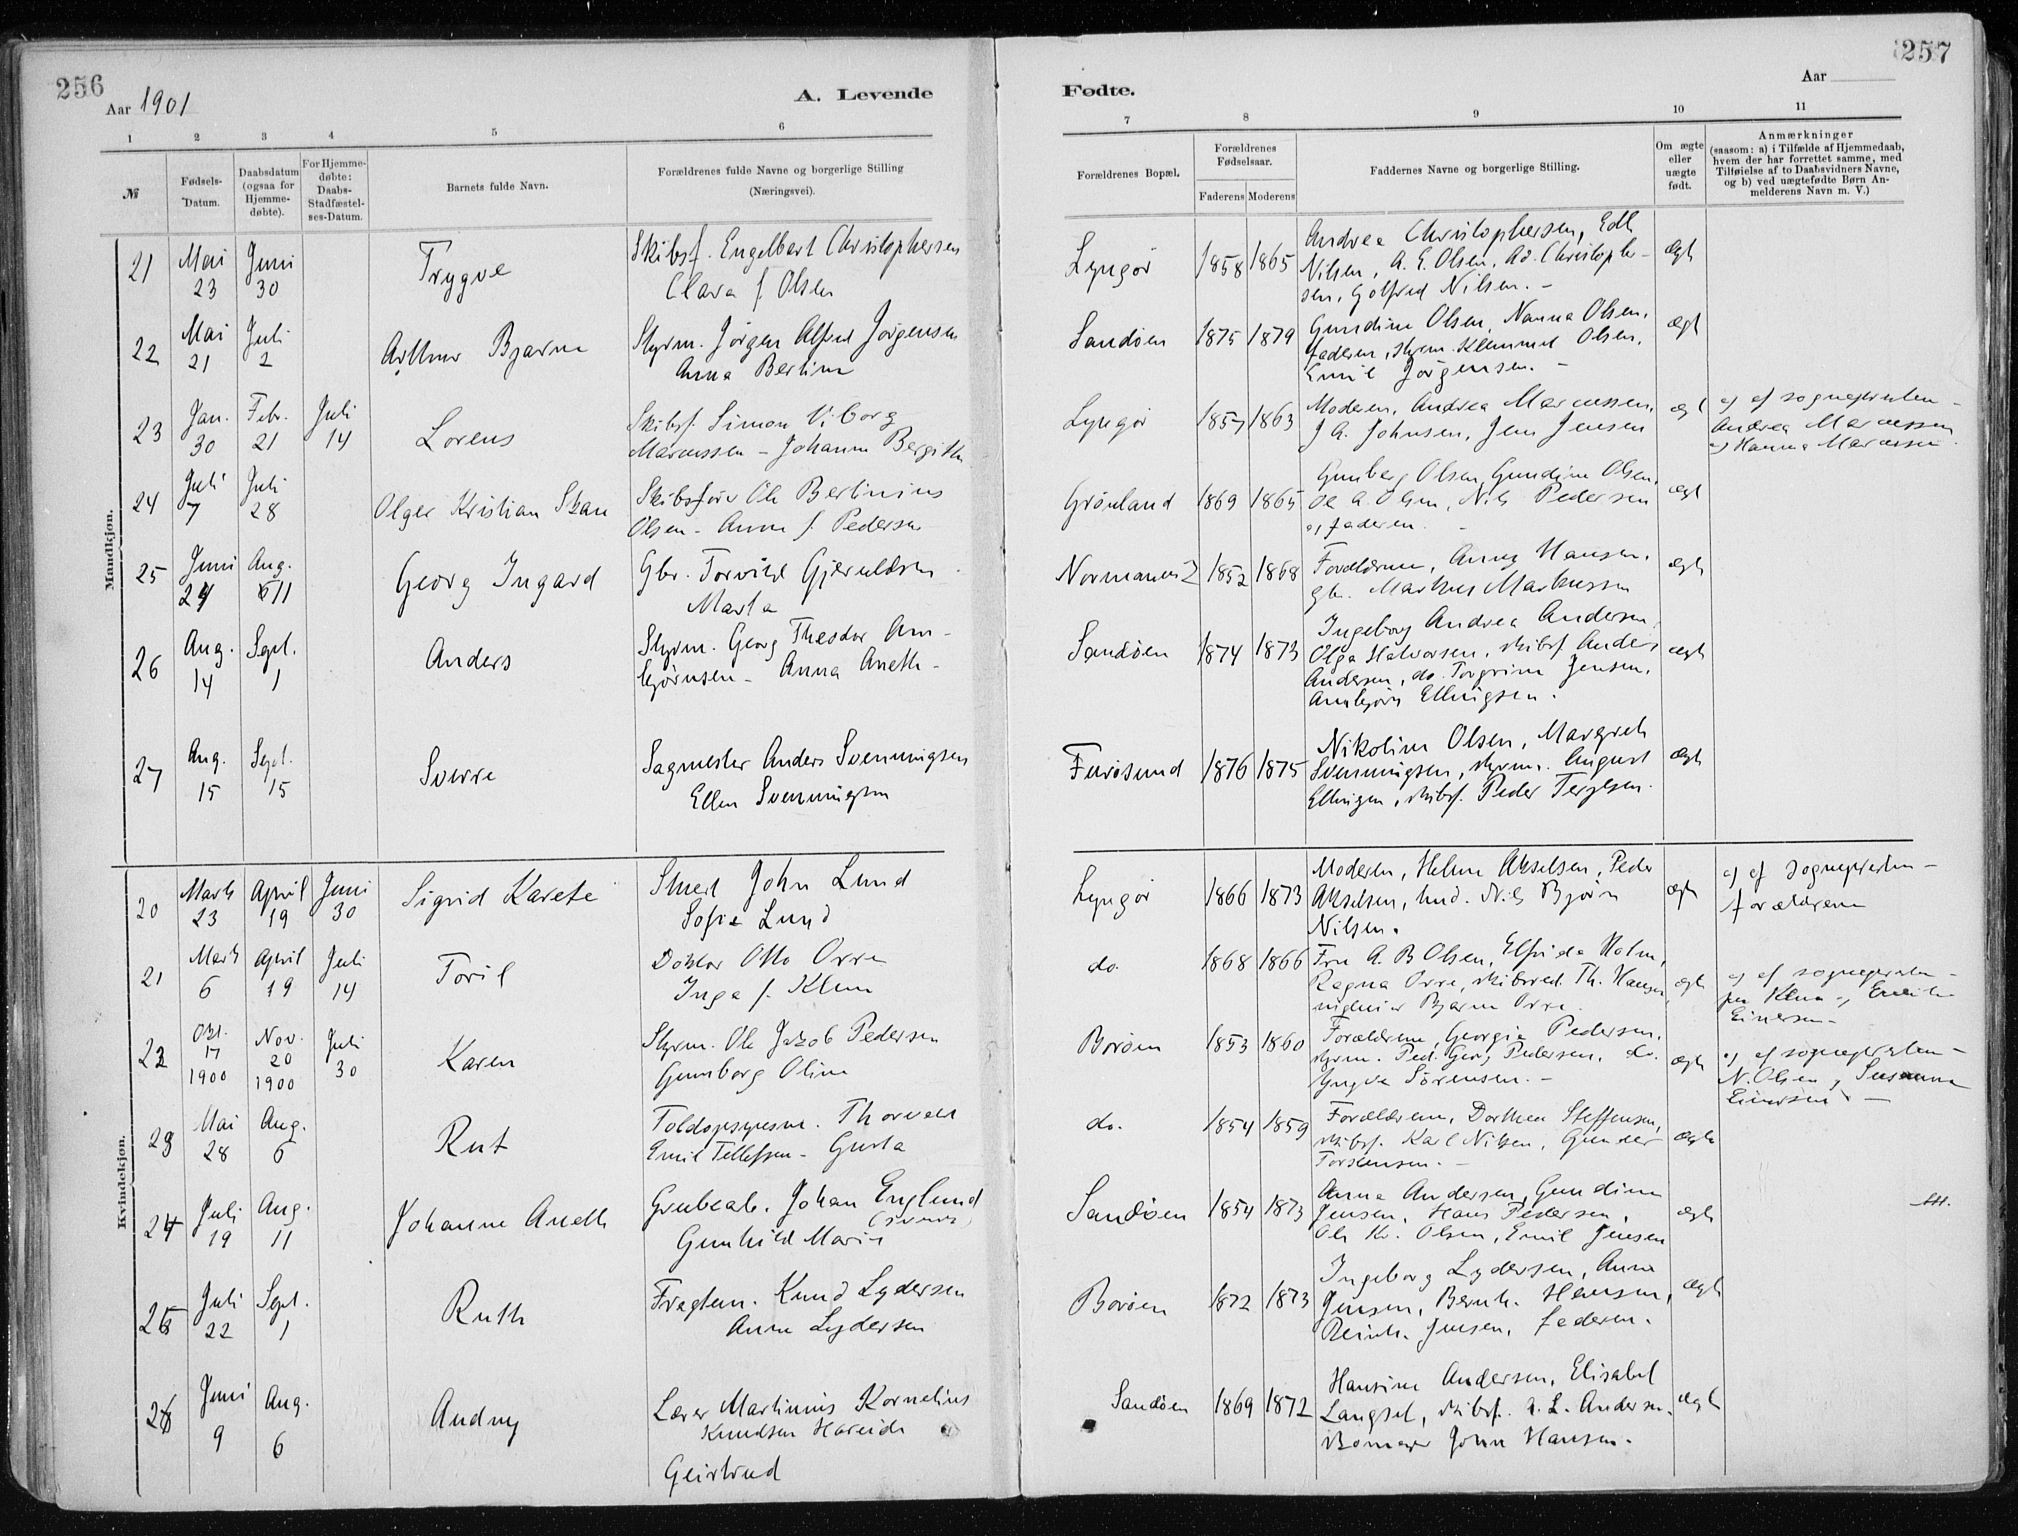 256
Aar 1901
A. Levende
1 2 3 4 5 6
№
Fødsels-
Datum.
Daabsdatum
(ogsaa for
Hjemme-
døbte).
For Hjemme-
døbte:
Daabs-
Stadfæstel-
ses-Datum.
Barnets fulde Navn.
Forældrenes fulde Navne og borgerlige Stilling
(Næringsvei).
Mandkjøn.
21 Mai 23 Juni 30 Trygve
Skibsf. Engelbart Christophersen
Clara f. Olsen
22 Mai 21 Juli 2 Arthur Bjarne
Styrm. Jörgen Alfred Jörgensen
Anna Bertine
23 Jan. 30 Febr. 21 Juli 14 Lorens
Skibsf. Simon Viborg
Marcussen – Johanne Bergithe
24 Juli 7 Juli 28 Olger Kristian
Skibsfører Ole Bertinius
Olsen – Anne f. Pedersen
25 Juni 24 Aug. 11 Georg Ingard
Gbr. Torvild Gjeruldsen
Marta
26 Aug. 14 Sept. 1 Anders
Styrm. Georg Theodor Arn-
bjørnsen – Anna Aneth-
27 Aug. 15 Sept. 15 Sverre
Sagmester Anders Svenningsen
Ellen Svenningsen
Kvindekjøn.
20 Marts 23 April 19 Juni 30 Sigrid Karete
Stuert John Lund
Sofie Lund
21 Marts 6 April 19 Juli 14 Toril
Doktor Otto Orre
Inga f. Klem
22 Okt. 17 1900 Nov. 20 1900 Juli 30 Karen
Styrm. Ole Jakob Pedersen
Gunborg Oline
23 Mai 28 Aug. 6 Rut
Toldopsynsm. Thorvald
Emil Tellefsen – Gusta
24 Juli 19 Aug. 11 Johanne Aneth
Grubearb. Johan Englund
(svensk)
Gunhild Marie
25 Juli 22 Sept. 1 Ruth
Fragtem. Knud Lydersen
Anne Lydersen
26 Juni 9 Aug. 6 Audny
Lærer Martinius Kornelius
Knudsen Hareide
Geirtrud
257
Aar
Fødte.
7 8 9 10 11
Forældrenes Bopæl.
Forældrenes
Fødselsaar.
Faderens Moderens
Faddernes Navne og borgerlige Stilling.
Om ægte
eller
uægte
født.
Anmærkninger
(saasom: a) i Tilfælde af Hjemmedaab,
hvem der har forrettet samme, med
Tilføielse af to Daabsvidners Navne,
og b) ved uægtefødte Børn An-
melderens Navn m. V.)
Lyngør 1858 1865 ægte
Andrea Christophersen, Edle
Nilsen, A. E. Olsen, Ad. Christopher-
sen, Golfred Nilsen. –
Sandøen 1875 1879 ægt
Gundine Olsen, Nanna Olsen,
faderen, styrm. Klemmet Olsen,
Emil Jørgensen. –
Lyngør 1857 1863 ægt
Moderen, Andrea Marcussen,
J. A. Johnsen, Jens Jensen
a) af sognepresten –
Andrea Marcussen
og Hanna Marcussen
Grønland 1869 1865 ægt
Gunborg Olsen, Gundine Olsen,
Ole A. Olsen, Nils Pedersen
og faderen.
Normansvig 1852 1868 ægte
Forældrene, Anny Hansen,
gbr. Markus Markussen
Sandøen 1874 1873 ægte
Ingeborg Andrea Andersen,
Olga Halvorsen, skibsf. Anders
Andersen, do. Torgrim Jensen,
Arnbjørn Ellingsen.
Furøsund 1876 1875 ægte
Nikoline Olsen, Margreth
Svenningsen, styrm. August
Ellingsen, skibsf. Peder Terjesen.
Lyngør 1866 1873 ægte
Moderen, Helene Akselsen, Peder
Akselsen, hmd. Nils Bjørn
Nilsen.
a) af sognepresten –
forældrene
do. 1868 1866 ægte
Fru A. B. Olsen, Elfrida Holm,
Ragna Orre, skibsred. Th. Hansen,
ingeniør Bjarne Orre.
a) af sognepresten –
fru Klem og Emilie
Einersen –
Borøen 1853 1860 ægte
Forældrene, Georgia Pedersen,
styrm. Ped. Georg Pedersen, do.
Yngve Sörensen. –
a) af sognepresten –
N. Olsen og Susanna
Einersen –
do. 1854 1859 ægte
Forældrene, Dorthea Steffensen,
skibsf. Karl Nilsen, Gunder
Torstensen. –
Sandøen 1854 1873 ægte
Anna Andersen, Gundine
Jensen, Hans Pedersen,
Ole Kr. Olsen, Emil Jensen
Borøen 1872 1873 ægte
Ingeborg Lydersen, Anne
Jensen, Bernh. Hansen,
Reinh. Jensen, faderen.
Sandøen 1869 1872 ægte
Hansine Andersen, Elisabet
Langset, skibsf. A. L. Andersen,
John Hansen.